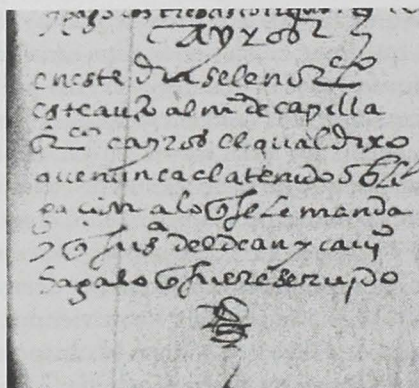 en este dia se le
este auto al mº de capilla
el qual dixo
que nunca el a tenido obli
gacion a lo q se le manda
y q susª del dean y cauº
haga lo q fuere seruido